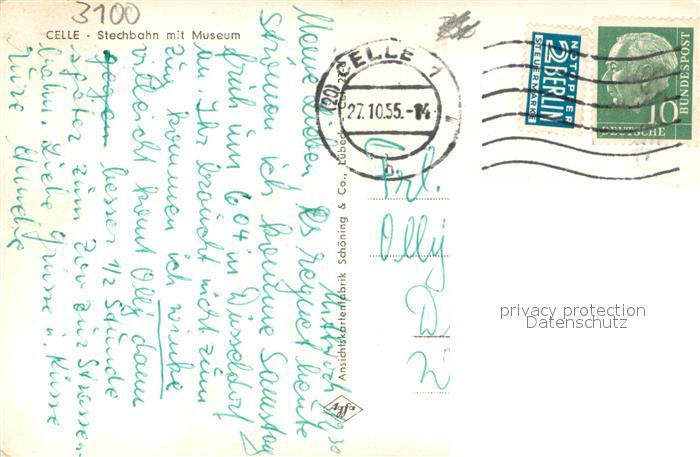 3100
CELLE - Stechbahn mit Museum
CELLE 1
(20a)
27.10.55.-14
b
NOTOPFER
2 BERLIN
STEUERMARKE
10
DEUTSCHE
BUNDESPOST
Mittwoch
Meine Lieben Es regnet heute
Strömen ich komme Samstag
früh um 6 04 in Düsseldorf
an. Ihr braucht nicht zum
Zug kommen ich winke
vielleicht kommt Olly dann
gegen besser 1/2 Stunde
später zum Zoo zur Strassen-
bahn. Liebe Grüsse u. Küsse
Eure
Ansichtskartenfabrik Schöning & Co., Lübeck
Agfa
Frl.
Olly
D
privacy protection
Datenschutz